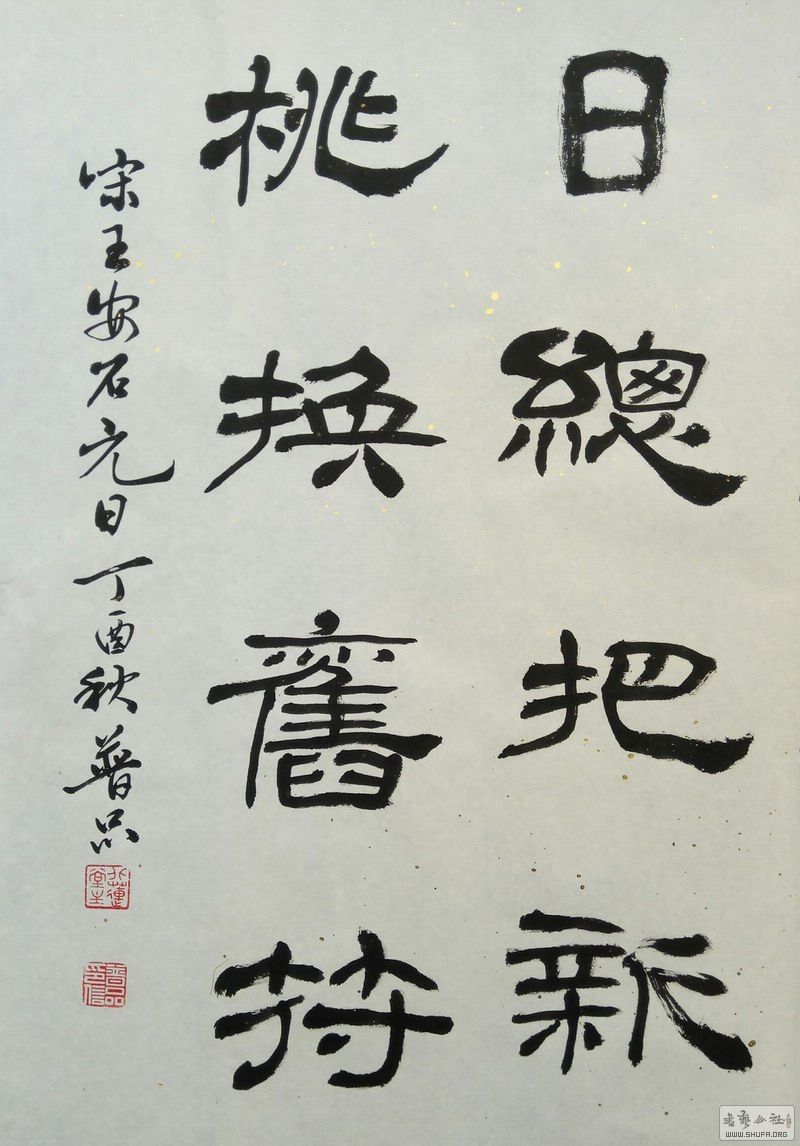 日總把新
桃換舊符
宋王安石元日丁酉秋普品
普品印信
書藝公社
WWW.SHUFA.ORG